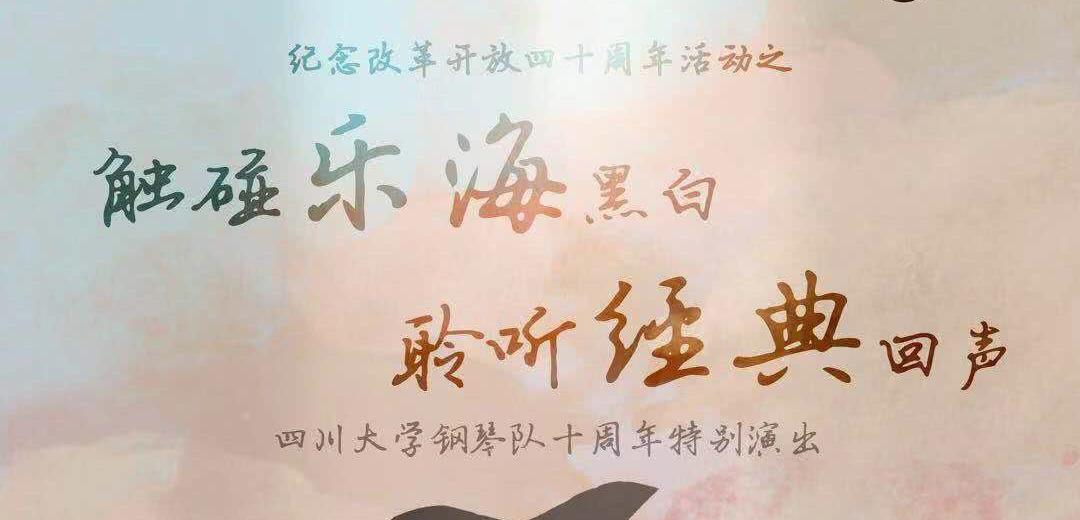 纪念改革开放四十周年活动之
触碰乐海黑白
聆听经典回声
四川大学钢琴队十周年特别演出